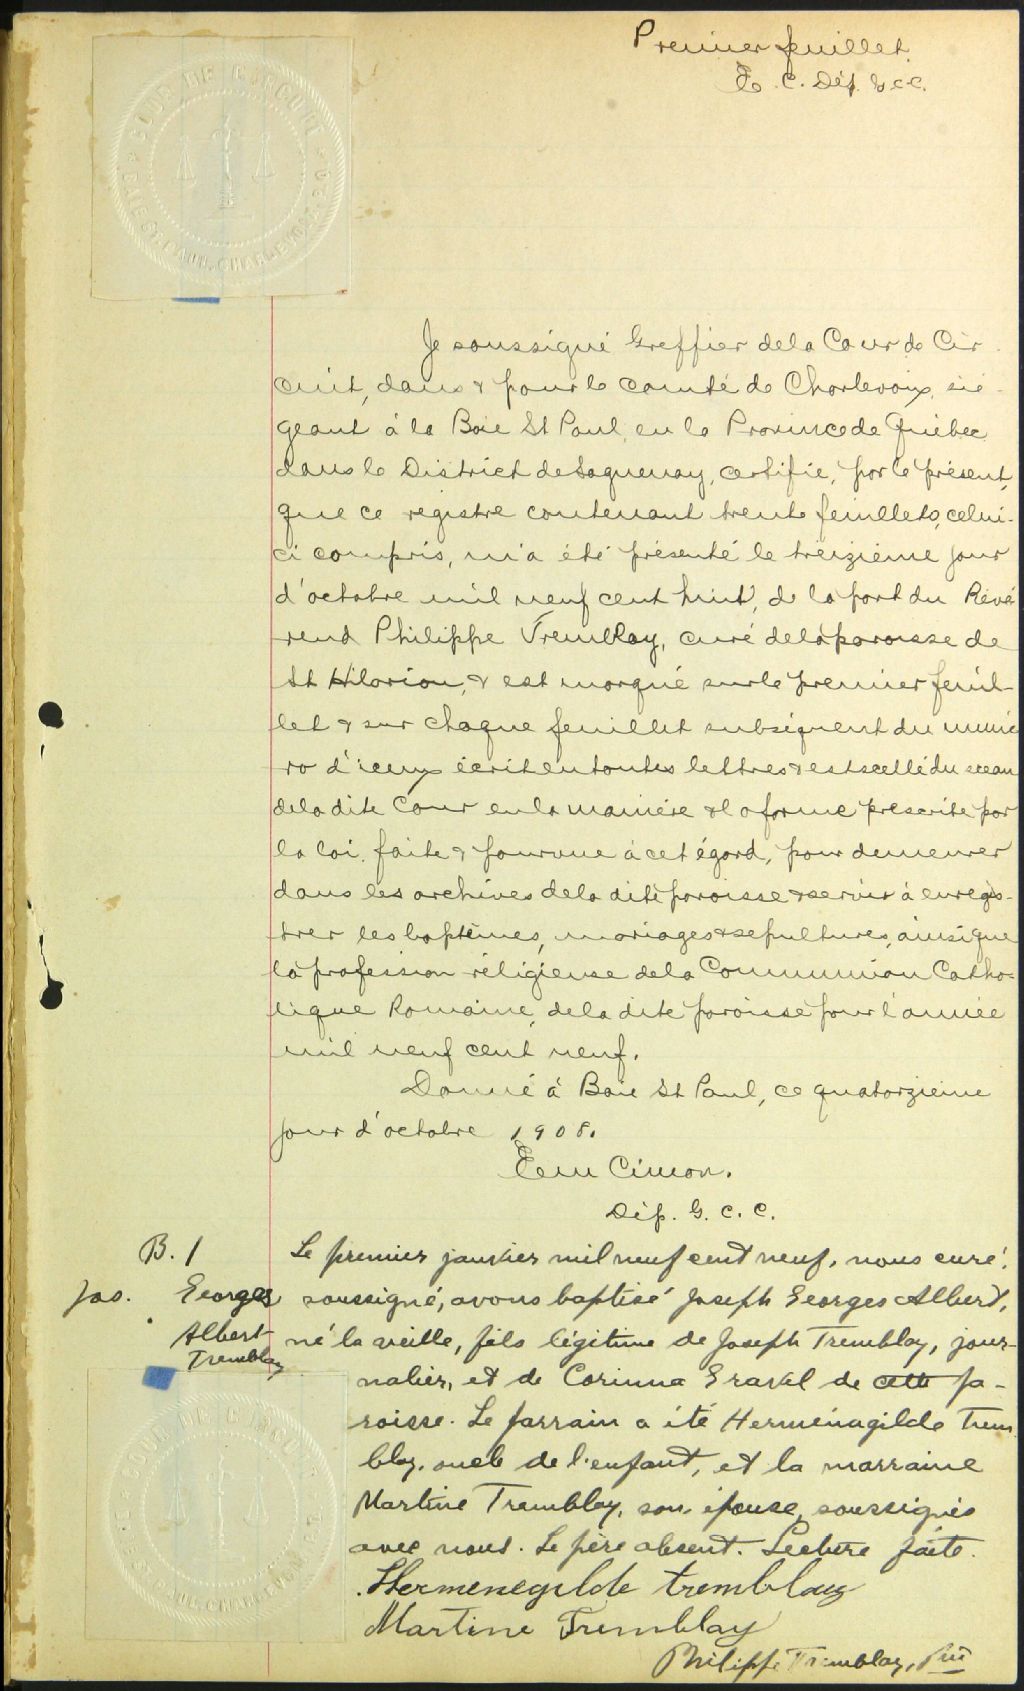 Premier feuillet.
E. C. Dép. G. C. C.
COUR DE CIRCUIT
BAIE ST. PAUL, CHARLEVOIX, P.Q.
Je soussigné Greffier de la Cour de Cir-
cuit, dans & pour le comté de Charlevoix, sié-
geant à la Baie St Paul, en la Province de Québec,
dans le District de Saguenay, certifie, par le présent,
que ce registre contenant trente feuillets, celui-
ci compris, m'a été présenté le treizième jour
d'octobre mil neuf cent huit, de la part du Révé
rend Philippe Tremblay, curé de la paroisse de
St Hilarion, & est marqué sur le premier feuil-
let & sur chaque feuillet subséquent du numé
ro d'iceux écrit en toutes lettres & est scellé du sceau
de la dite Cour en la manière & la forme prescrite par
la loi faite & pourvue à cet égard, pour demeurer
dans les archives de la dite paroisse & servir à enregis-
trer les baptêmes, mariages & sépultures, ainsi que
la profession réligieuse de la Communion Catho-
lique Romaine, de la dite paroisse pour l'année
mil neuf cent neuf.
Donné à Baie St Paul, ce quatorzième
jour d'octobre 1908.
Em Cimon.
Dép. G. C. C.
B. 1
Jos. Georges
Albert
Tremblay
Le premier janvier mil neuf cent neuf, nous curé
soussigné, avons baptisé Joseph Georges Albert,
né la veille, fils légitime de Joseph Tremblay, jour-
nalier, et de Corinna Gravel de cette pa-
roisse. Le parrain a été Herménagilde Trem
blay, oncle de l'enfant, et la marraine
Martine Tremblay, son épouse, soussignés
avec nous. Le père absent. Lecture faite.
Hermenegilde tremblay
Martine Tremblay
Philippe Tremblay, Ptre
COUR DE CIRCUIT
BAIE ST. PAUL, CHARLEVOIX, P.Q.